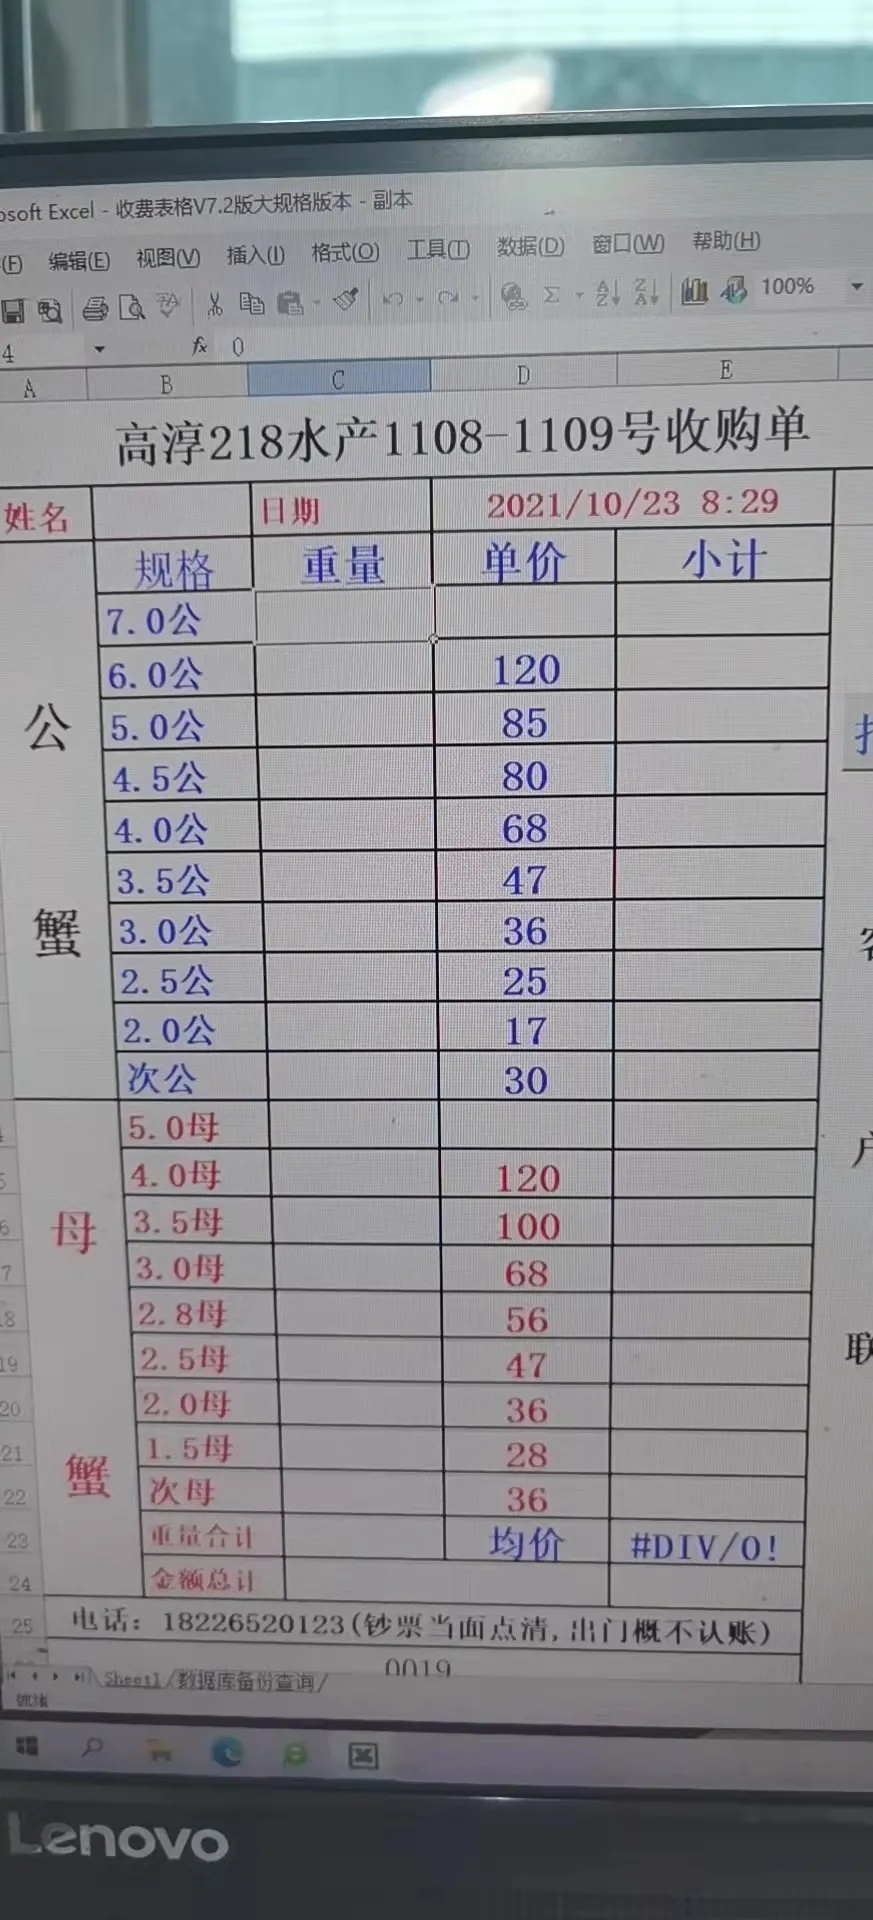 osoft Excel - 收费表格V7.2版大规格版本 - 副本
(F) 编辑(E) 视图(V) 插入(I) 格式(O) 工具(T) 数据(D) 窗口(W) 帮助(H)
100%
4 fx 0
A B C D E
高淳218水产1108-1109号收购单
姓名 日期 2021/10/23 8:29
规格 重量 单价 小计
7.0公
6.0公 120
公 5.0公 85
4.5公 80
4.0公 68
3.5公 47
蟹 3.0公 36
2.5公 25
2.0公 17
次公 30
5.0母
4.0母 120
母 3.5母 100
3.0母 68
2.8母 56
19 2.5母 47
20 2.0母 36
21 蟹 1.5母 28
22 次母 36
23 重量合计 均价 #DIV/0!
24 金额总计
25 电话: 18226520123(钞票当面点清,出门概不认账)
0019
Sheet1/数据库备份查询/
就绪
户
Lenovo